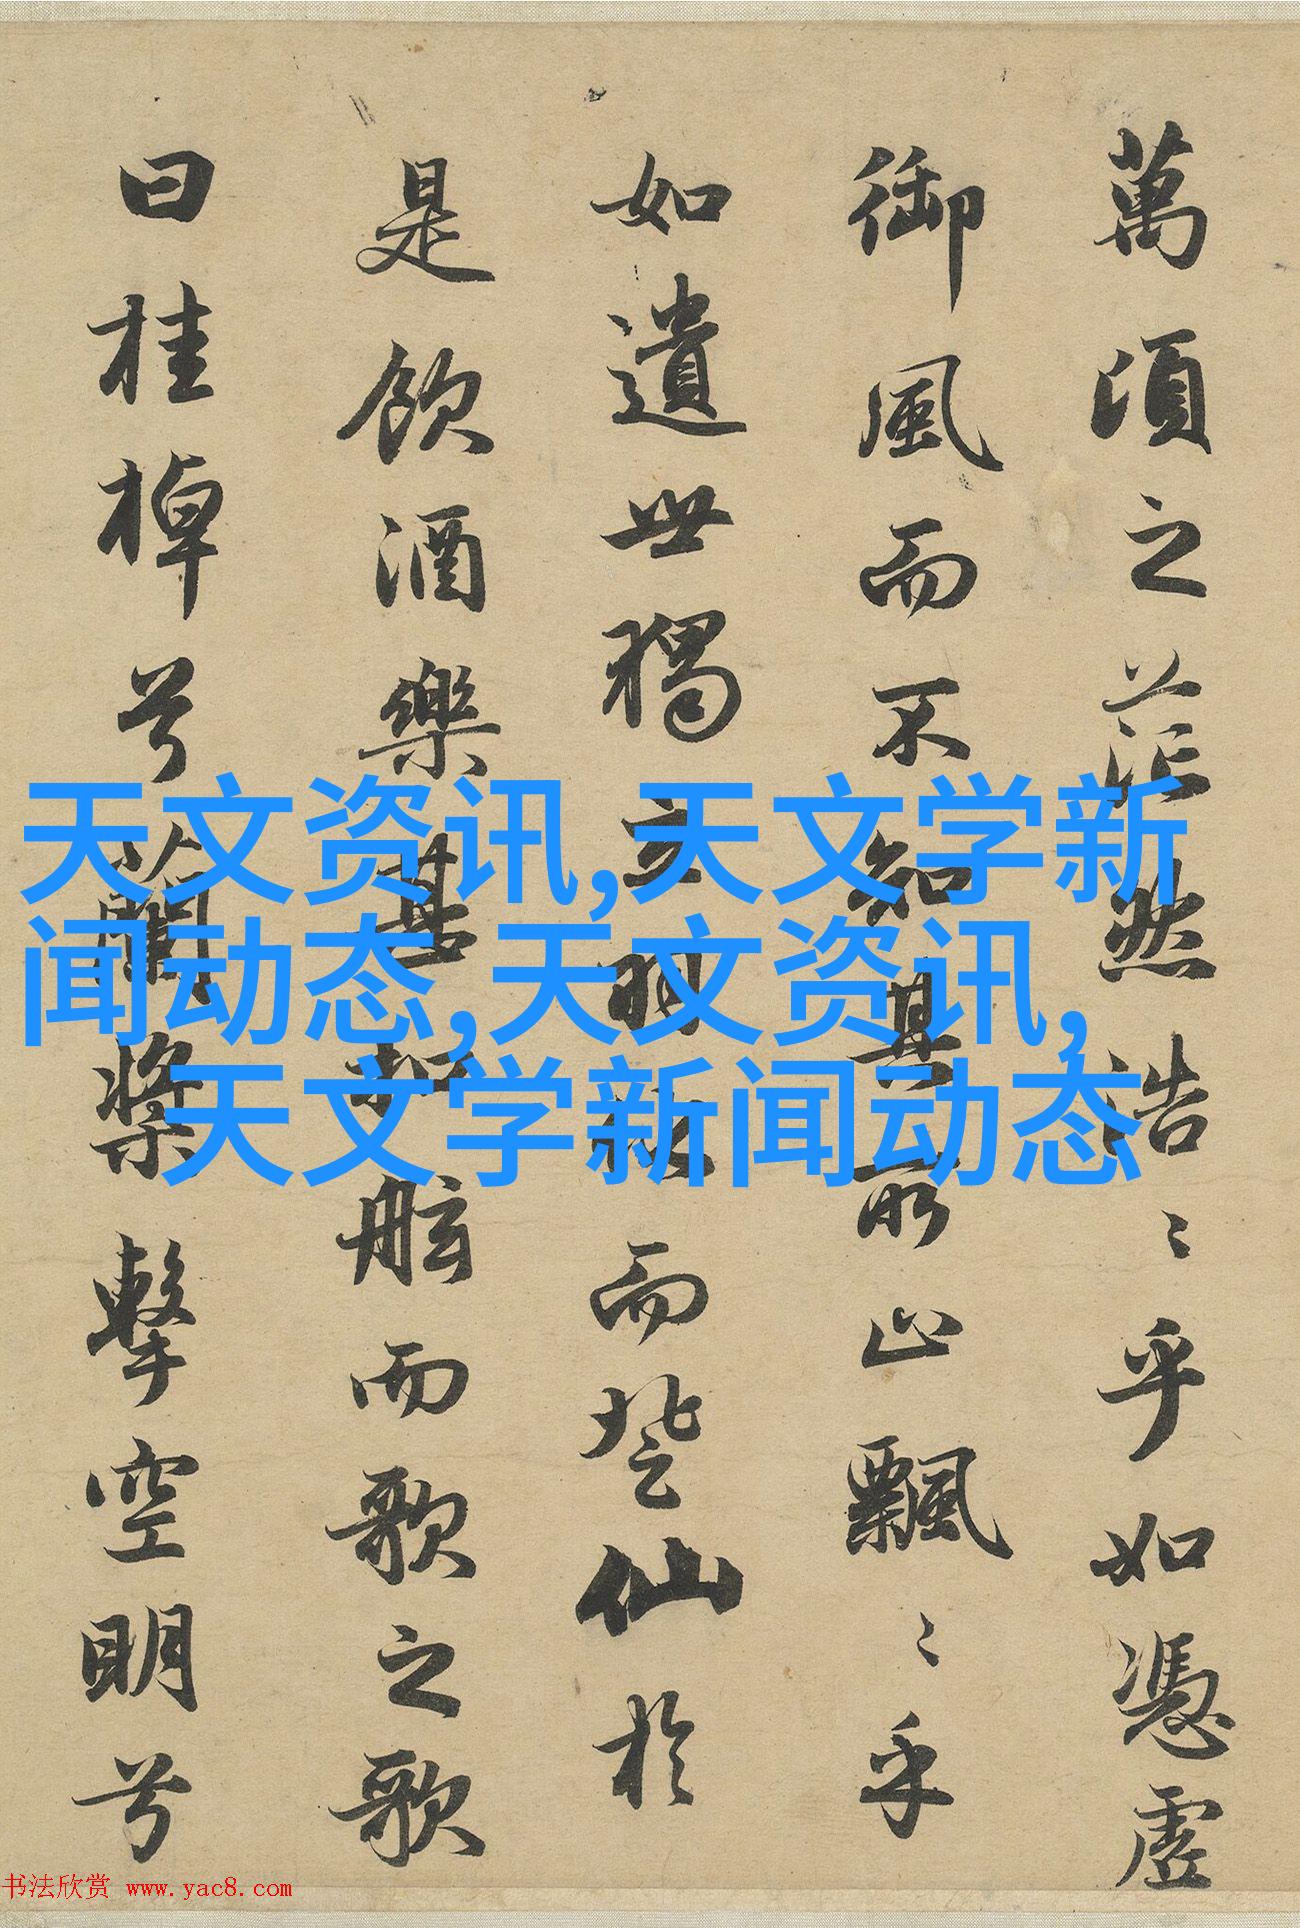 萬頃之茫然浩〻乎如憑虛
御風而不知其所止飄〻乎
如遺世獨立羽化而登仙於
是飲酒樂甚扣舷而歌之歌
曰桂棹兮蘭槳擊空明兮
天文资讯,天文学新
闻动态,天文资讯,
天文学新闻动态
书法欣赏 www.yac8.com